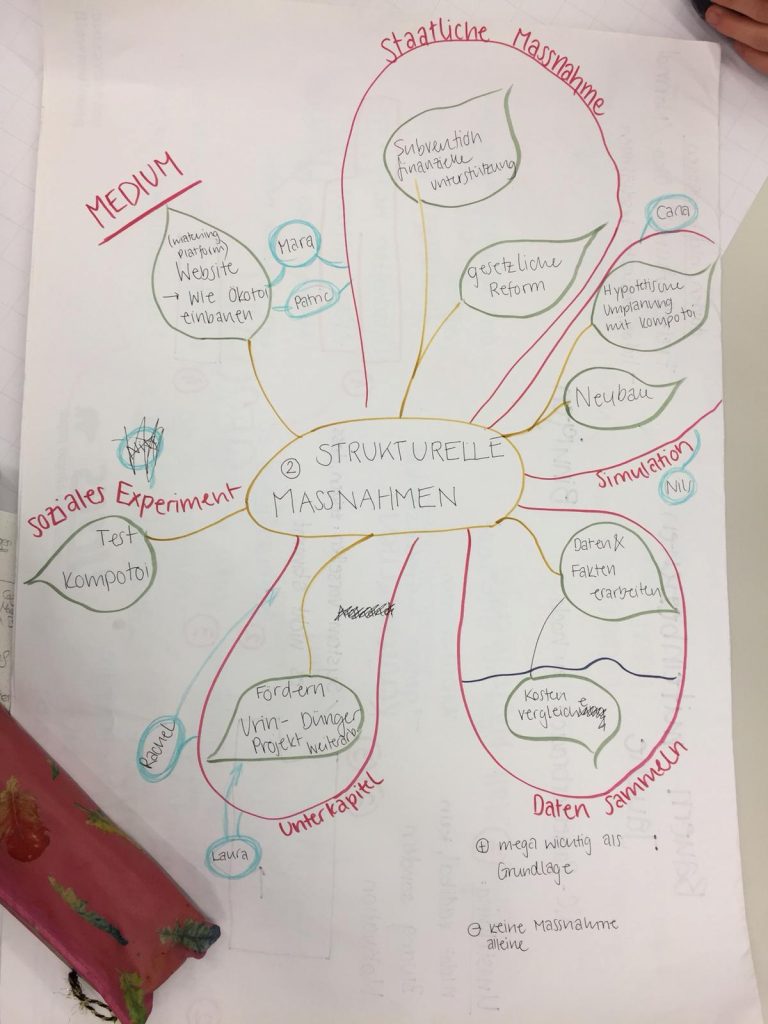 Staatliche Massnahme
Subvention
finanzielle
unterstützung
gesetzliche
Reform
MEDIUM
(Matching
Platform)
Website
→ Wie Ökotoi
einbauen
Mara
Patric
Hypotetische
Umplanung
mit Kompotoi
Neubau
Simulation
② STRUKTURELLE
MASSNAHMEN
soziales Experiment
Test
Kompotoi
Daten &
Fakten
erarbeiten
Kosten
vergleiche
Daten sammeln
Fördern
Urin- Dünger
Projekt
Unterkapitel
Rachel
Laura
⊕ mega wichtig als :
Grundlage
⊖ keine Massnahme
alleine